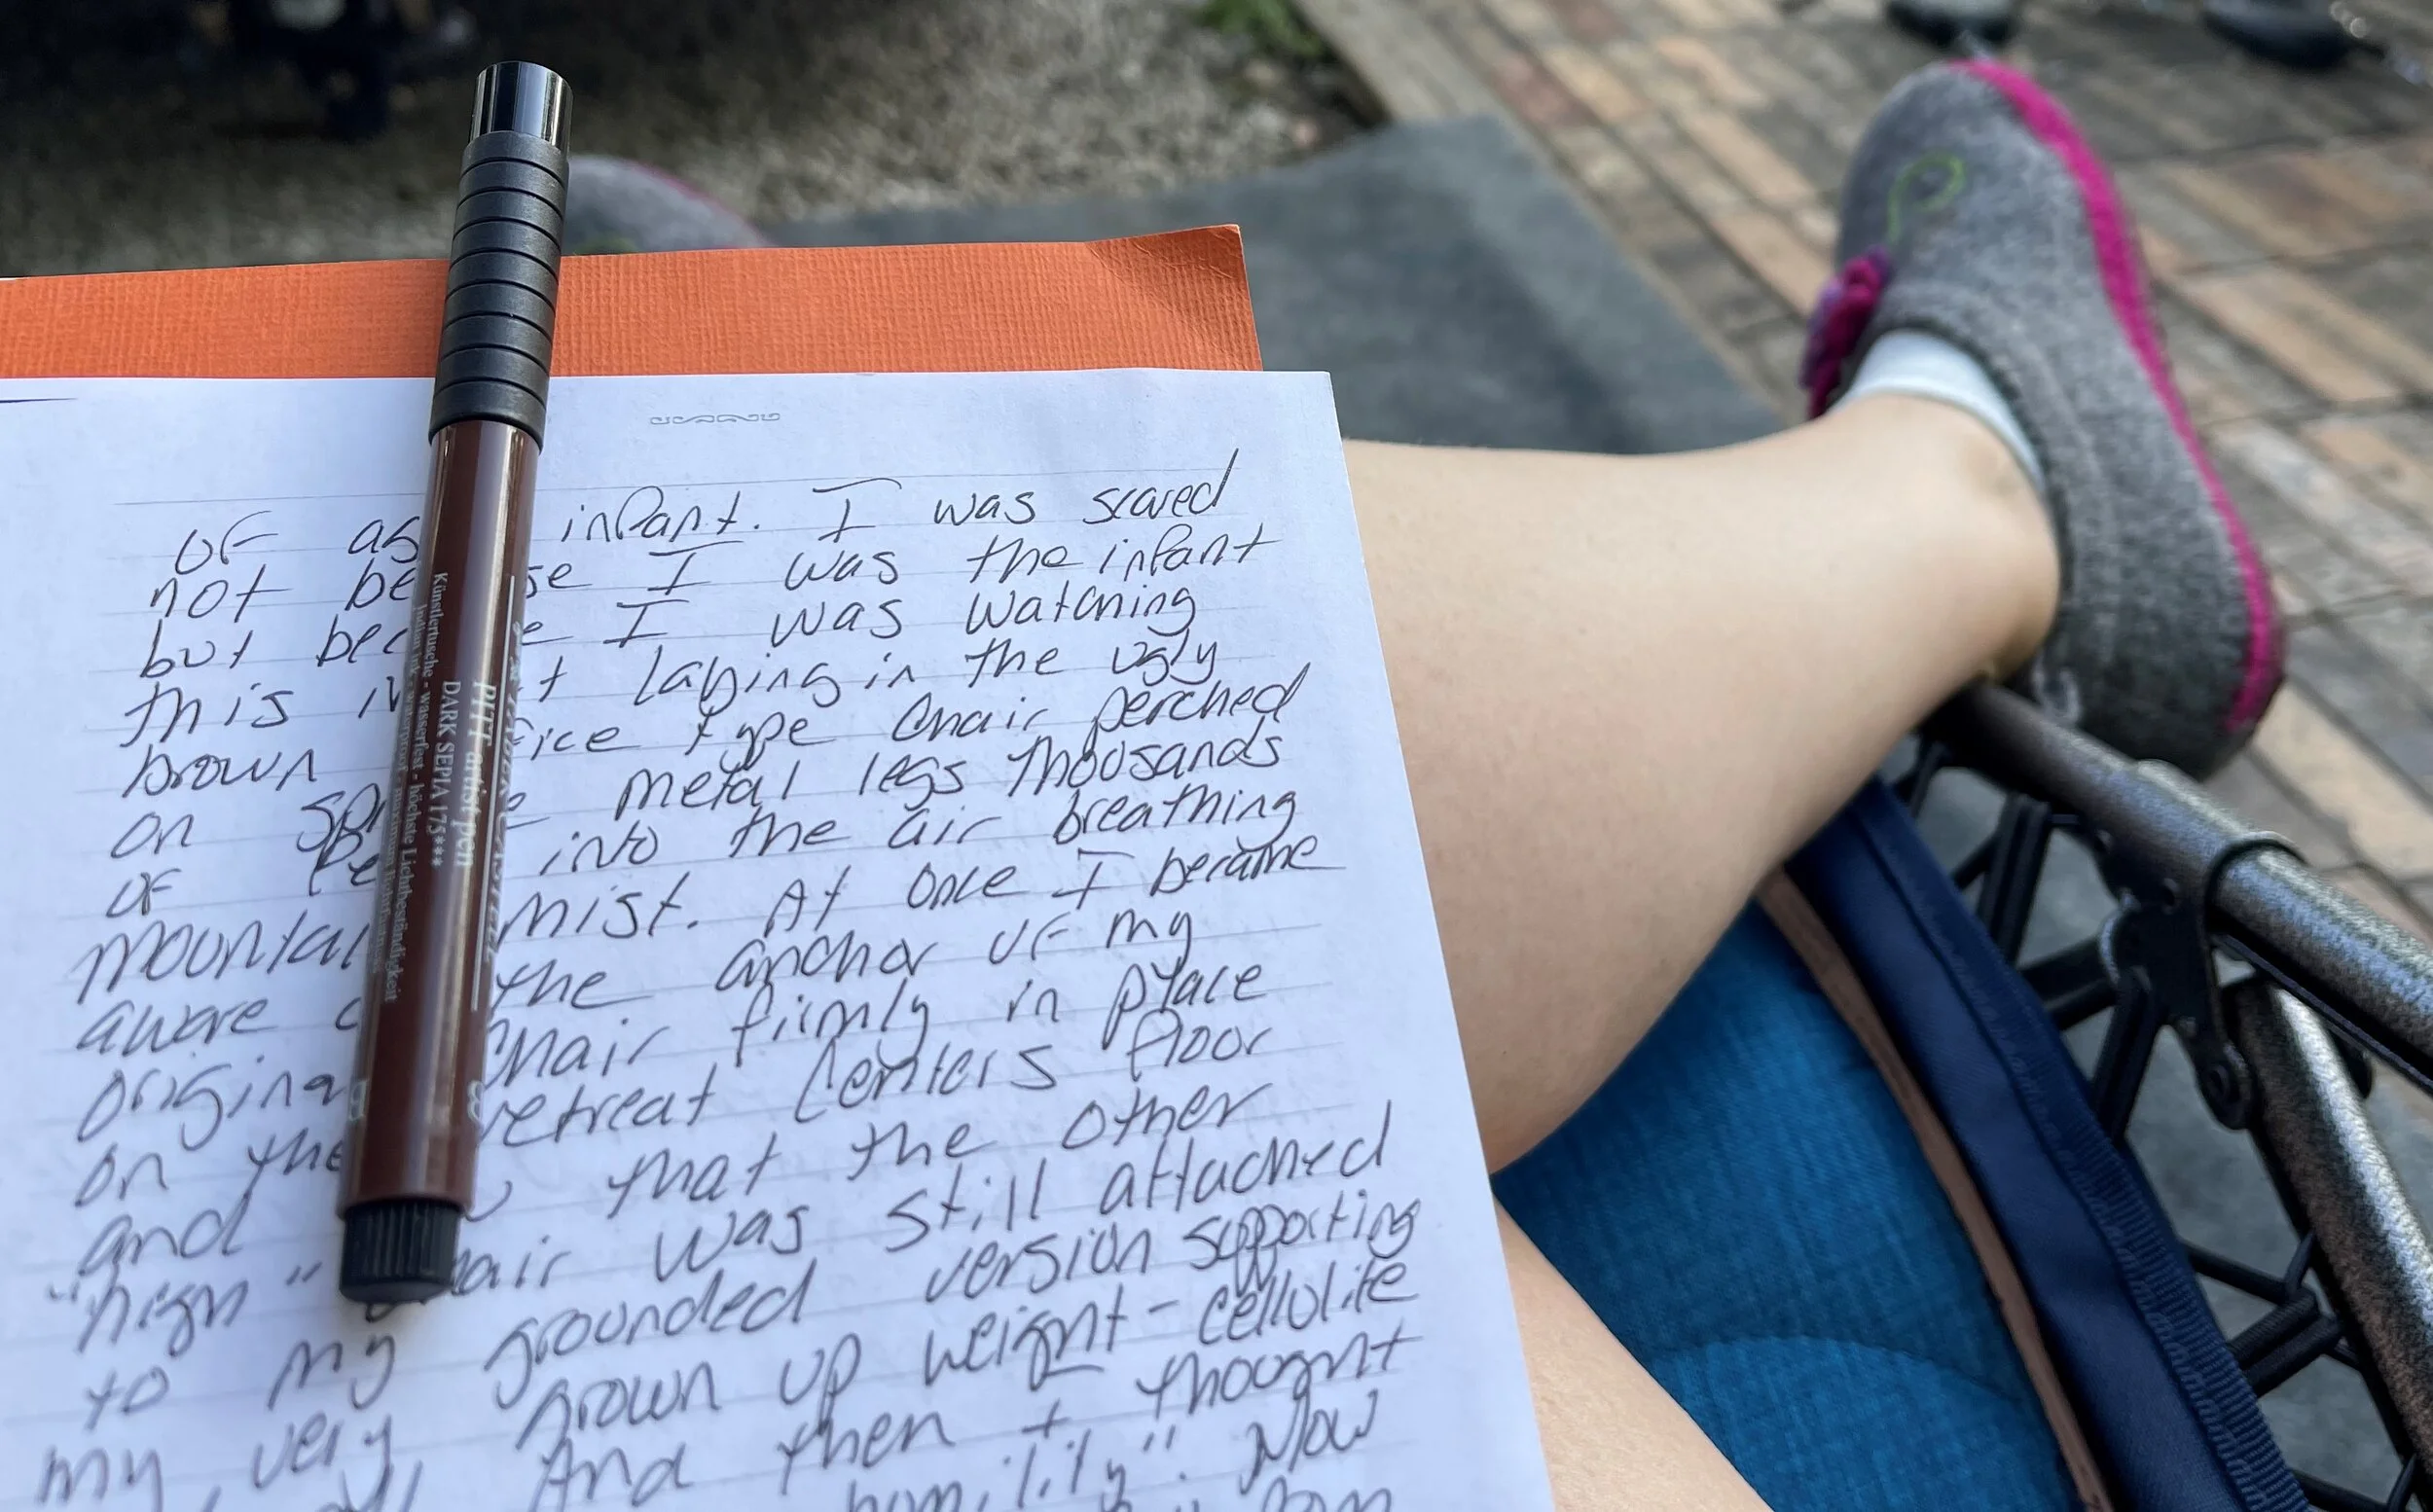 of as infant. I was scared
not be se I was the infant
but bec e I was watching
this in t laying in the ugly
brown fice type chair perched
on sp metal legs thousands
of fe into the air breathing
mountai mist. At once I became
aware o the anchor of my
origina chair firmly in place
on the retreat centers floor
and that the other
"high" chair was still attached
to my grounded version supporting
my very grown up weight - cellulite
And then I thought
humility". Now
PITT artist pen
DARK SEPIA 175***
Künstlertusche - wasserfest - höchste Lichtbeständigkeit
Indian ink - waterproof - maximum lightfastness